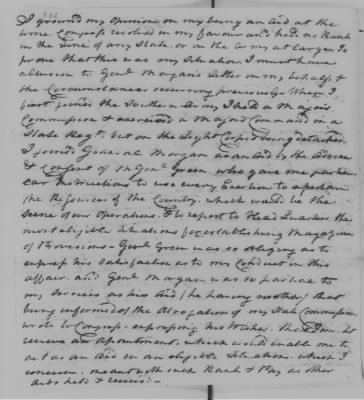 I ground my Opinions on my being an Aid at the
time Congress resolved in my favour and had no Rank
in the Line of any State, or in the Army at Large. To
prove that this was my Situation, I must have
allusion to Genl Morgan's Letter on my behalf, &
the Circumstances occurring previously. When I
first joined the Southern Army I held a Majors
Commission & exercised a Majors Command in a
State Regt. but on the Light Corps being detached
I joined General Morgan as an Aid by the Advice
& Consent of M. Genl Green, who gave me particu
lar Instructions to use every Exertion to ascertain
the Resources of the Country, which would be the
Scene of our Operations, & to report to Head Quarters, the
most eligible Situations for establishing Magazines
of Provisions - Genl Green was so obliging as to
express his Satisfaction as to my Conduct in this
affair, and Genl Morgan was so partial to
my Services as his Aid (he having no other) that
being informed of the Abrogation of my State Commission
wrote to Congress, expressing his Wishes, that I might
receive an Apointment, which would enable me to
act as an Aid in an eligible Situation, which I
conceive, meant with such Rank & Pay as other
Aids held & received. -